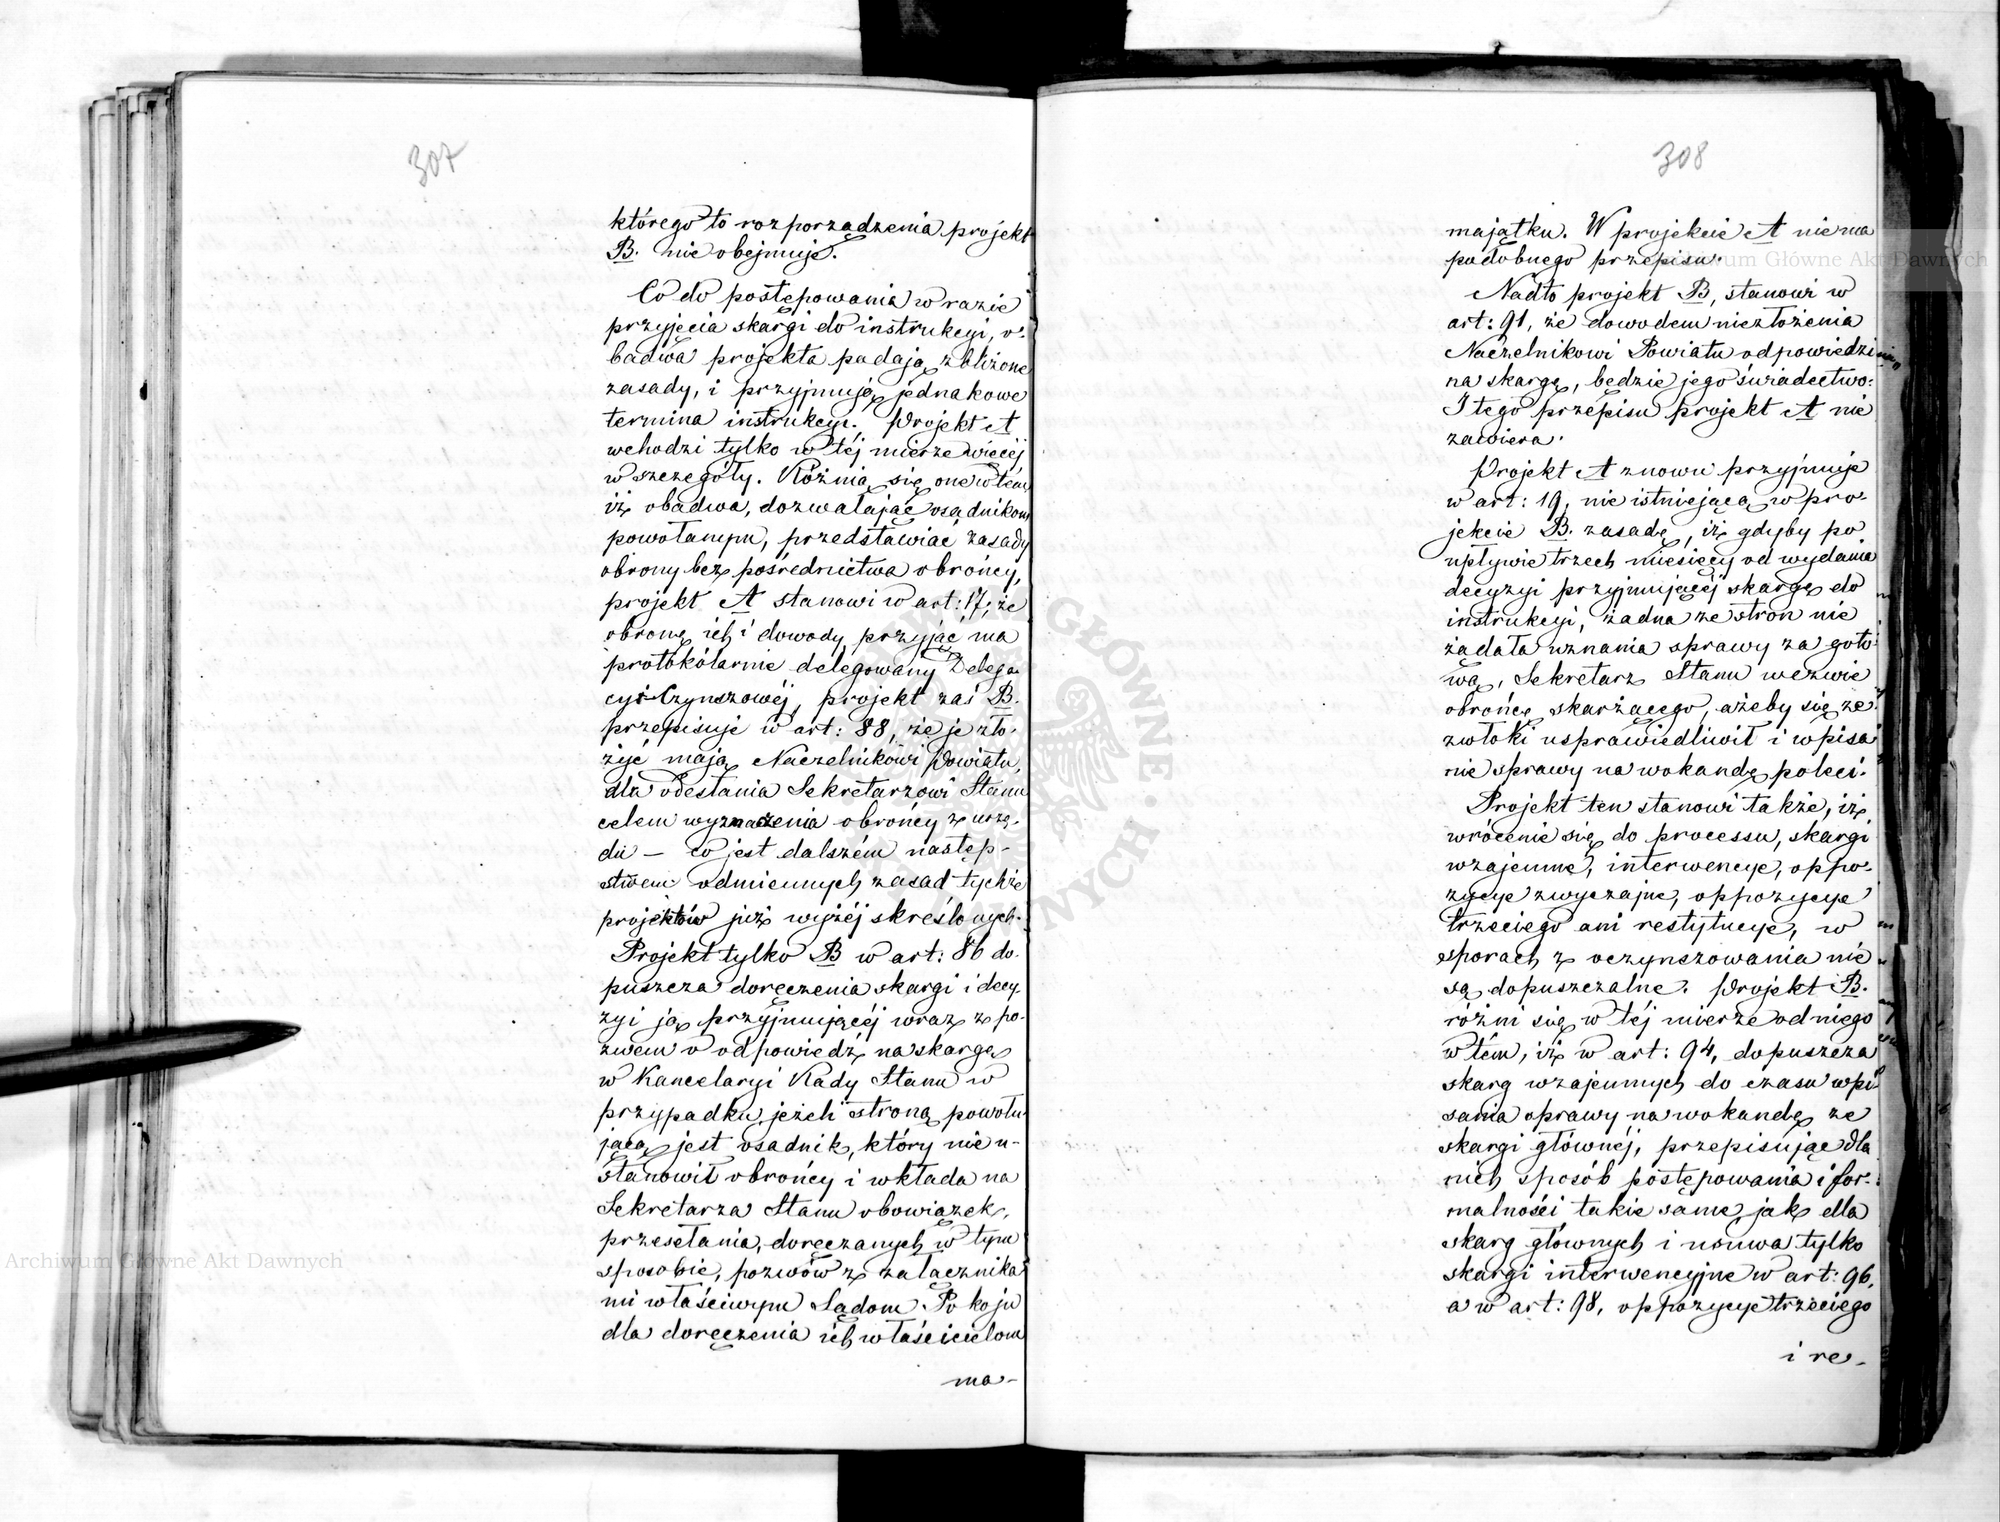 307
którego to rozporządzenia projekt
B. nie obejmuje.
Co do postępowania w razie
przyjęcia skargi do instrukcyi, o-
badwa projekta padają zbliżone
zasady, i przyjmują jednakowe
termina instrukcyi. Projekt A
wchodzi tylko w téj mierze więcéj
w szczegóły. Różnią się one w tém
iż obadwa, dozwalając osadnikom
powołanym, przedstawiać zasady
obrony bez pośrednictwa obrońcy,
projekt A stanowi w art: 17, że
obronę ich i dowody przyjąć ma
protokólarnie delegowany Delega-
cyi Czynszowéj, projekt zaś B.
przepisuje w art: 88, że je zło-
żyć mają Naczelnikowi Powiatu,
dla odesłania Sekretarzowi Stanu
celem wyznaczenia obrońcy z urzę-
du — co jest dalszém następ-
stwem odmiennych zasad tychże
projektów już wyżéj skreślonych.
Projekt tylko B w art: 86 do-
puszcza doręczenia skargi i decy-
zyi ją przyjmującéj wraz z po-
zwem o odpowiedź na skargę
w Kancelaryi Rady Stanu w
przypadku, jeżeli stroną powołu-
jącą jest osadnik, który nie u-
stanowił obrońcy i wkłada na
Sekretarza Stanu obowiązek,
przesełania, doręczanych w tym
sposobie, pozwów z załącznika-
mi właściwym Sądom Pokoju
dla doręczenia ich właścicielom
ma-
308
majątku. W projekcie A niema
podobnego przepisu.
Nadto projekt B, stanowi w
art: 91, że dowodem niezłożenia
Naczelnikowi Powiatu odpowiedzi
na skargę, będzie jego świadectwo:
I tego przepisu projekt A nie
zawiera.
Projekt A znowu przyjmuje
w art: 19, nie istniejącą w pro-
jekcie B. zasadę, iż gdyby po
upływie trzech miesięcy od wydania
decyzyi przyjmującéj skargę do
instrukcyi, żadna ze stron nie
żądała uznania sprawy za goto-
wą, Sekretarz Stanu wezwie
obrońcę skarżącego, ażeby się ze
zwłoki usprawiedliwił i wpisa-
nie sprawy na wokandę poleci.
Projekt ten stanowi także, iż
wrócenie się do processu, skargi
wzajemne, interwencye, oppo-
zycye zwyczajne, oppozycye
trzeciego ani restytucye, w
sporach z oczynszowania nie
są dopuszczalne. Projekt B.
różni się w téj mierze od niego
w tém, iż w art: 94, dopuszcza
skarg wzajemnych do czasu wpi-
sania sprawy na wokandę ze
skargi głównéj, przepisując dla
nich sposób postępowania i for-
malności takie same, jak dla
skarg głównych i usuwa tylko
skargi interwencyjne w art: 96,
a w art: 98, oppozycye trzeciego
i re-
Archiwum Główne Akt Dawnych
Archiwum Główne Akt Dawnych